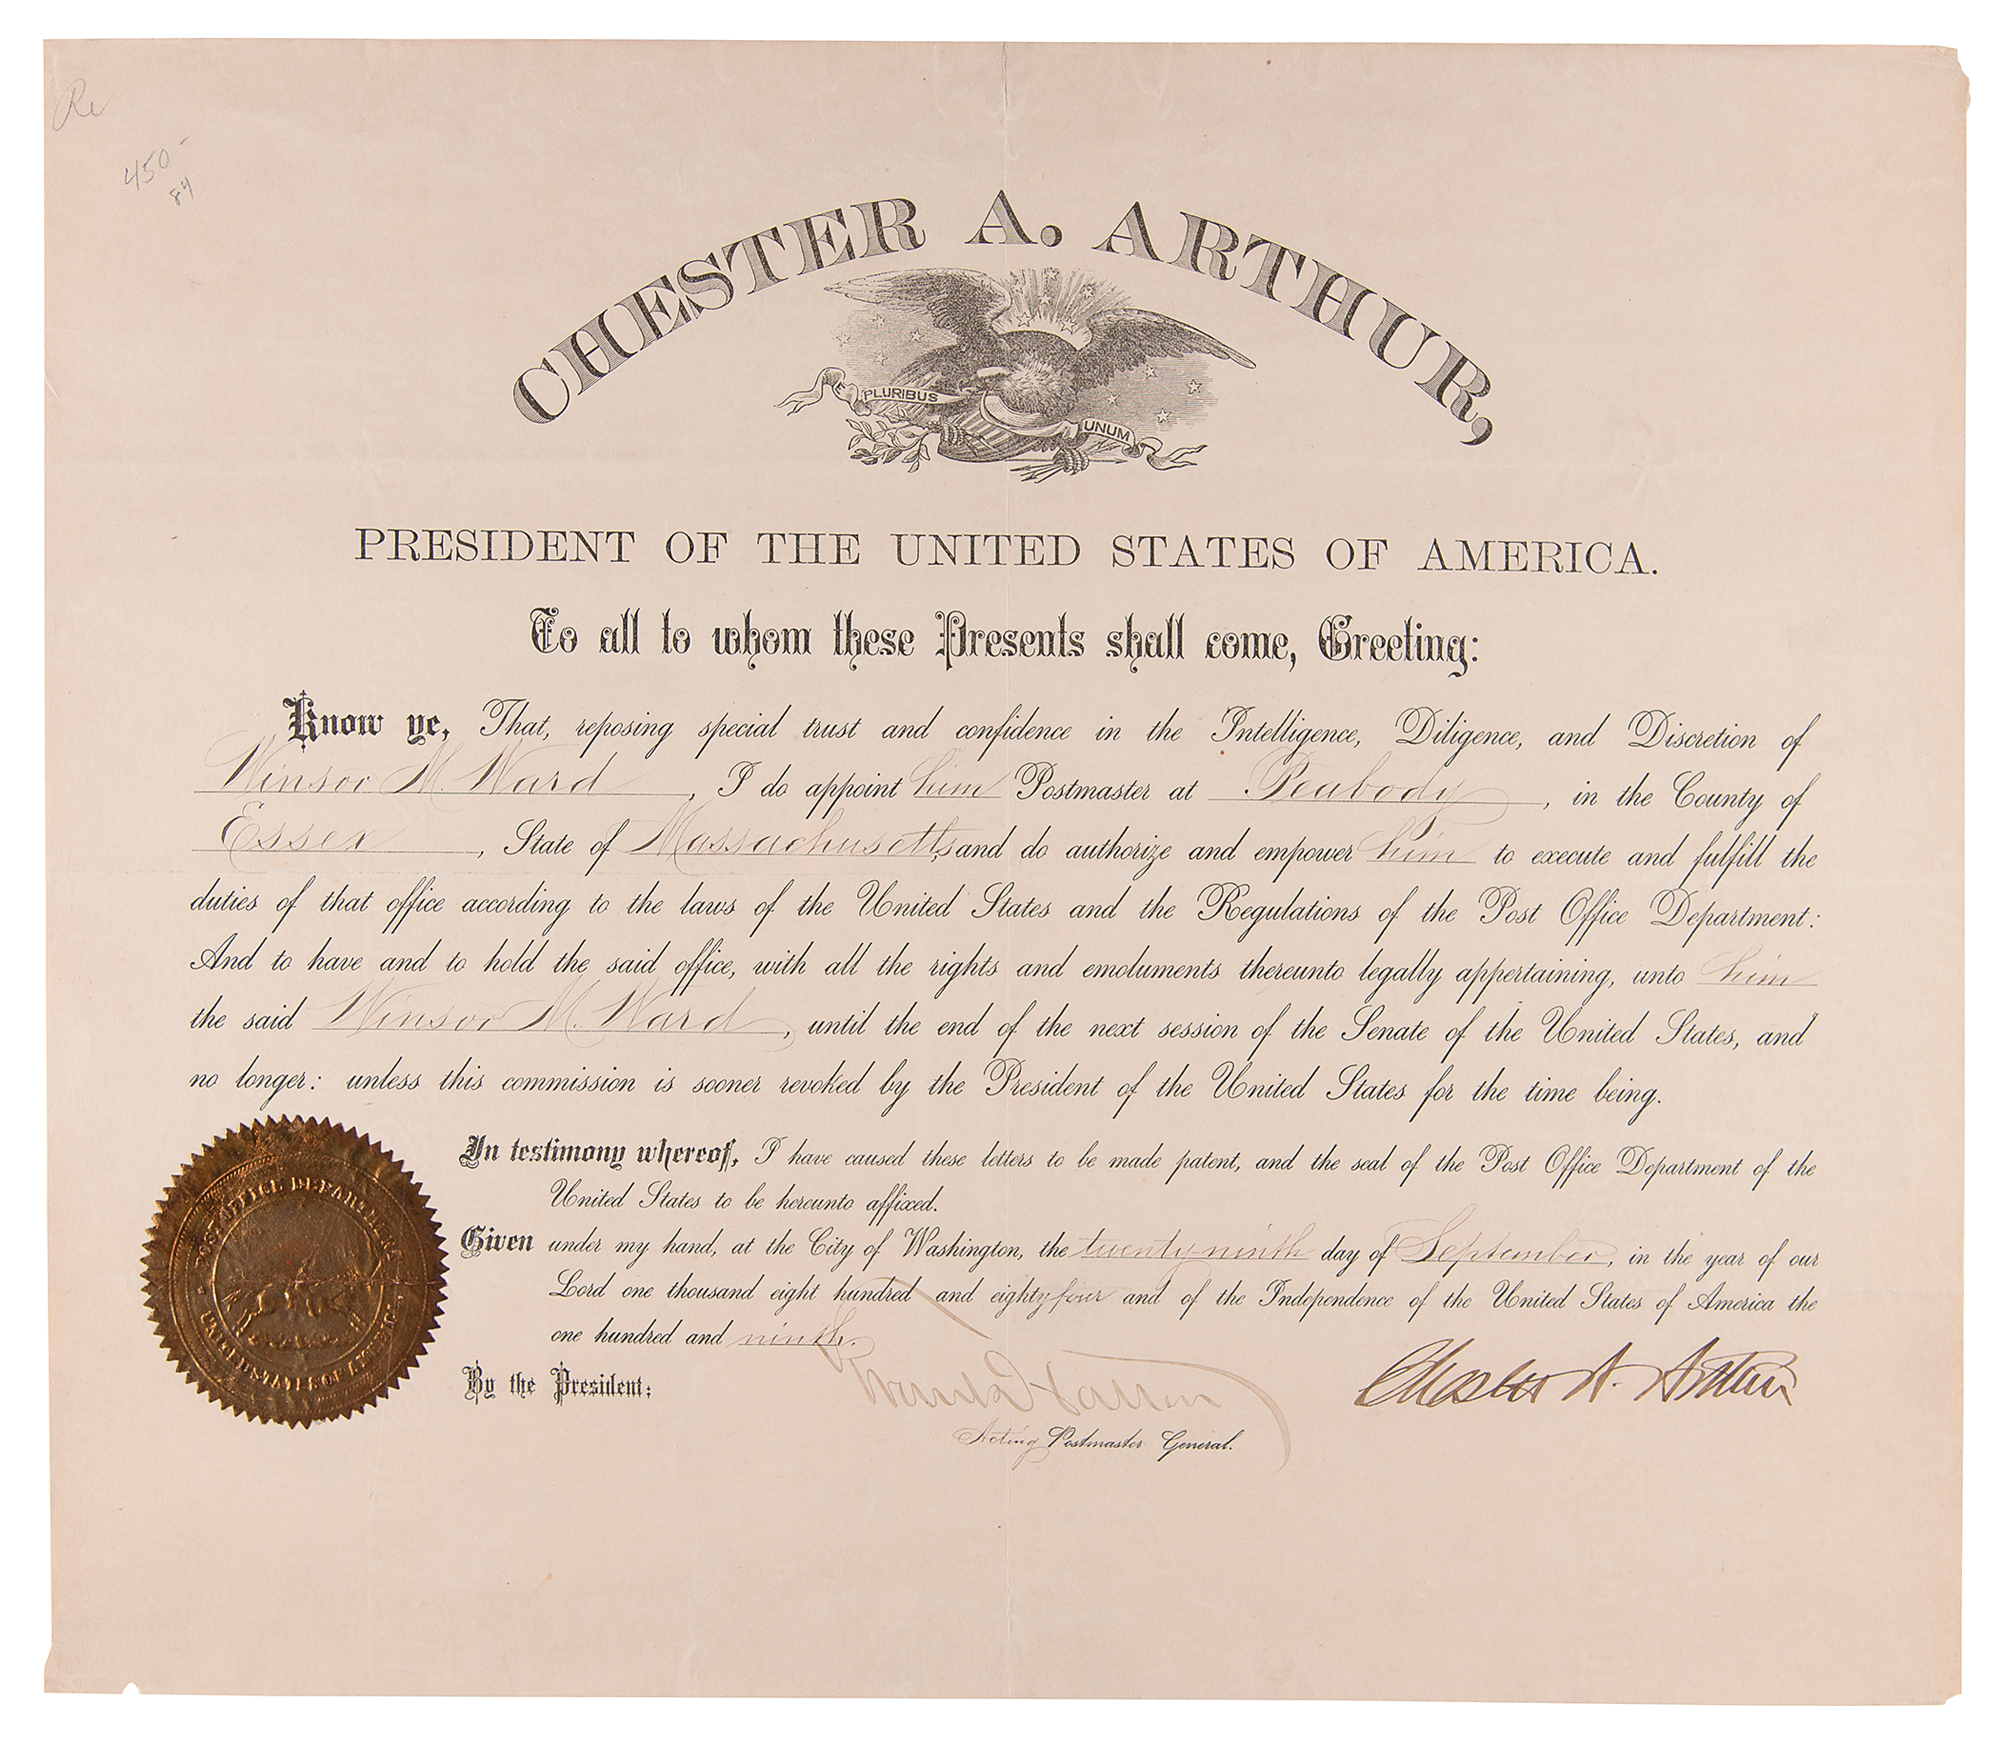 Re
450-
84
CHESTER A. ARTHUR,
E PLURIBUS UNUM
PRESIDENT OF THE UNITED STATES OF AMERICA.
To all to whom these Presents shall come, Greeting:
Know ye, That, reposing special trust and confidence in the Intelligence, Diligence, and Discretion of
Winsor M. Ward, I do appoint him Postmaster at Peabody, in the County of
Essex, State of Massachusetts, and do authorize and empower him to execute and fulfill the
duties of that office according to the laws of the United States and the Regulations of the Post Office Department:
And to have and to hold the said office, with all the rights and emoluments thereunto legally appertaining, unto him
the said Winsor M. Ward, until the end of the next session of the Senate of the United States, and
no longer: unless this commission is sooner revoked by the President of the United States for the time being.
In testimony whereof, I have caused these letters to be made patent, and the seal of the Post Office Department of the
United States to be hereunto affixed.
Given under my hand, at the City of Washington, the twenty-ninth day of September, in the year of our
Lord one thousand eight hundred and eighty four and of the Independence of the United States of America the
one hundred and ninth.
By the President:
Frank Hatton
Chester A. Arthur
Acting Postmaster General.
POST OFFICE DEPARTMENT
UNITED STATES OF AMERICA